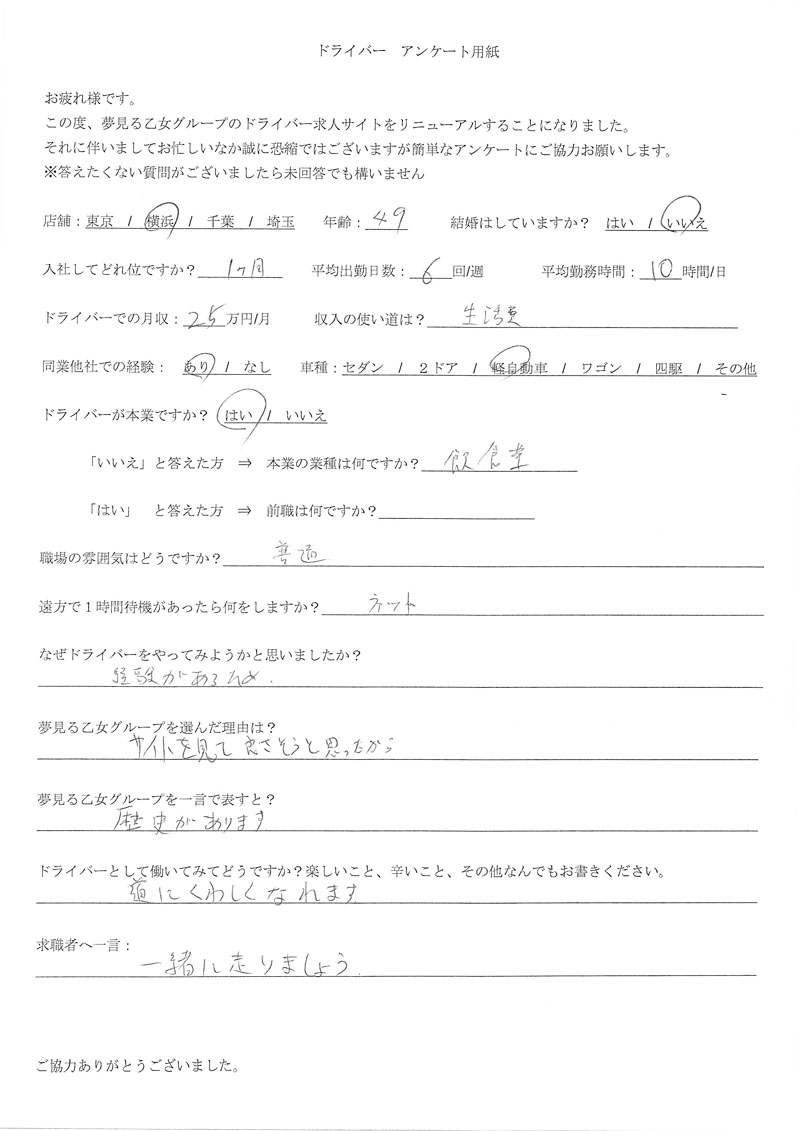 ドライバー　アンケート用紙
お疲れ様です。
この度、夢見る乙女グループのドライバー求人サイトをリニューアルすることになりました。
それに伴いましてお忙しいなか誠に恐縮ではございますが簡単なアンケートにご協力お願いします。
※答えたくない質問がございましたら未回答でも構いません
店舗：東京 / 横浜 / 千葉 / 埼玉　年齢：49　結婚はしていますか？　はい / いいえ
入社してどれ位ですか？ 1ヶ月　平均出勤日数：6 回/週　平均勤務時間：10 時間/日
ドライバーでの月収：25万円/月　収入の使い道は？ 生活費
同業他社での経験：　あり / なし　車種：セダン / 2ドア / 軽自動車 / ワゴン / 四駆 / その他
ドライバーが本業ですか？　はい / いいえ
「いいえ」と答えた方　⇒　本業の業種は何ですか？ 飲食業
「はい」　と答えた方　⇒　前職は何ですか？
職場の雰囲気はどうですか？ 普通
遠方で１時間待機があったら何をしますか？ ネット
なぜドライバーをやってみようかと思いましたか？
経験があるため.
夢見る乙女グループを選んだ理由は？
サイトを見て良さそうと思ったから
夢見る乙女グループを一言で表すと？
歴史があります
ドライバーとして働いてみてどうですか？楽しいこと、辛いこと、その他なんでもお書きください。
道にくわしくなれます
求職者へ一言：
一緒に走りましょう.
ご協力ありがとうございました。